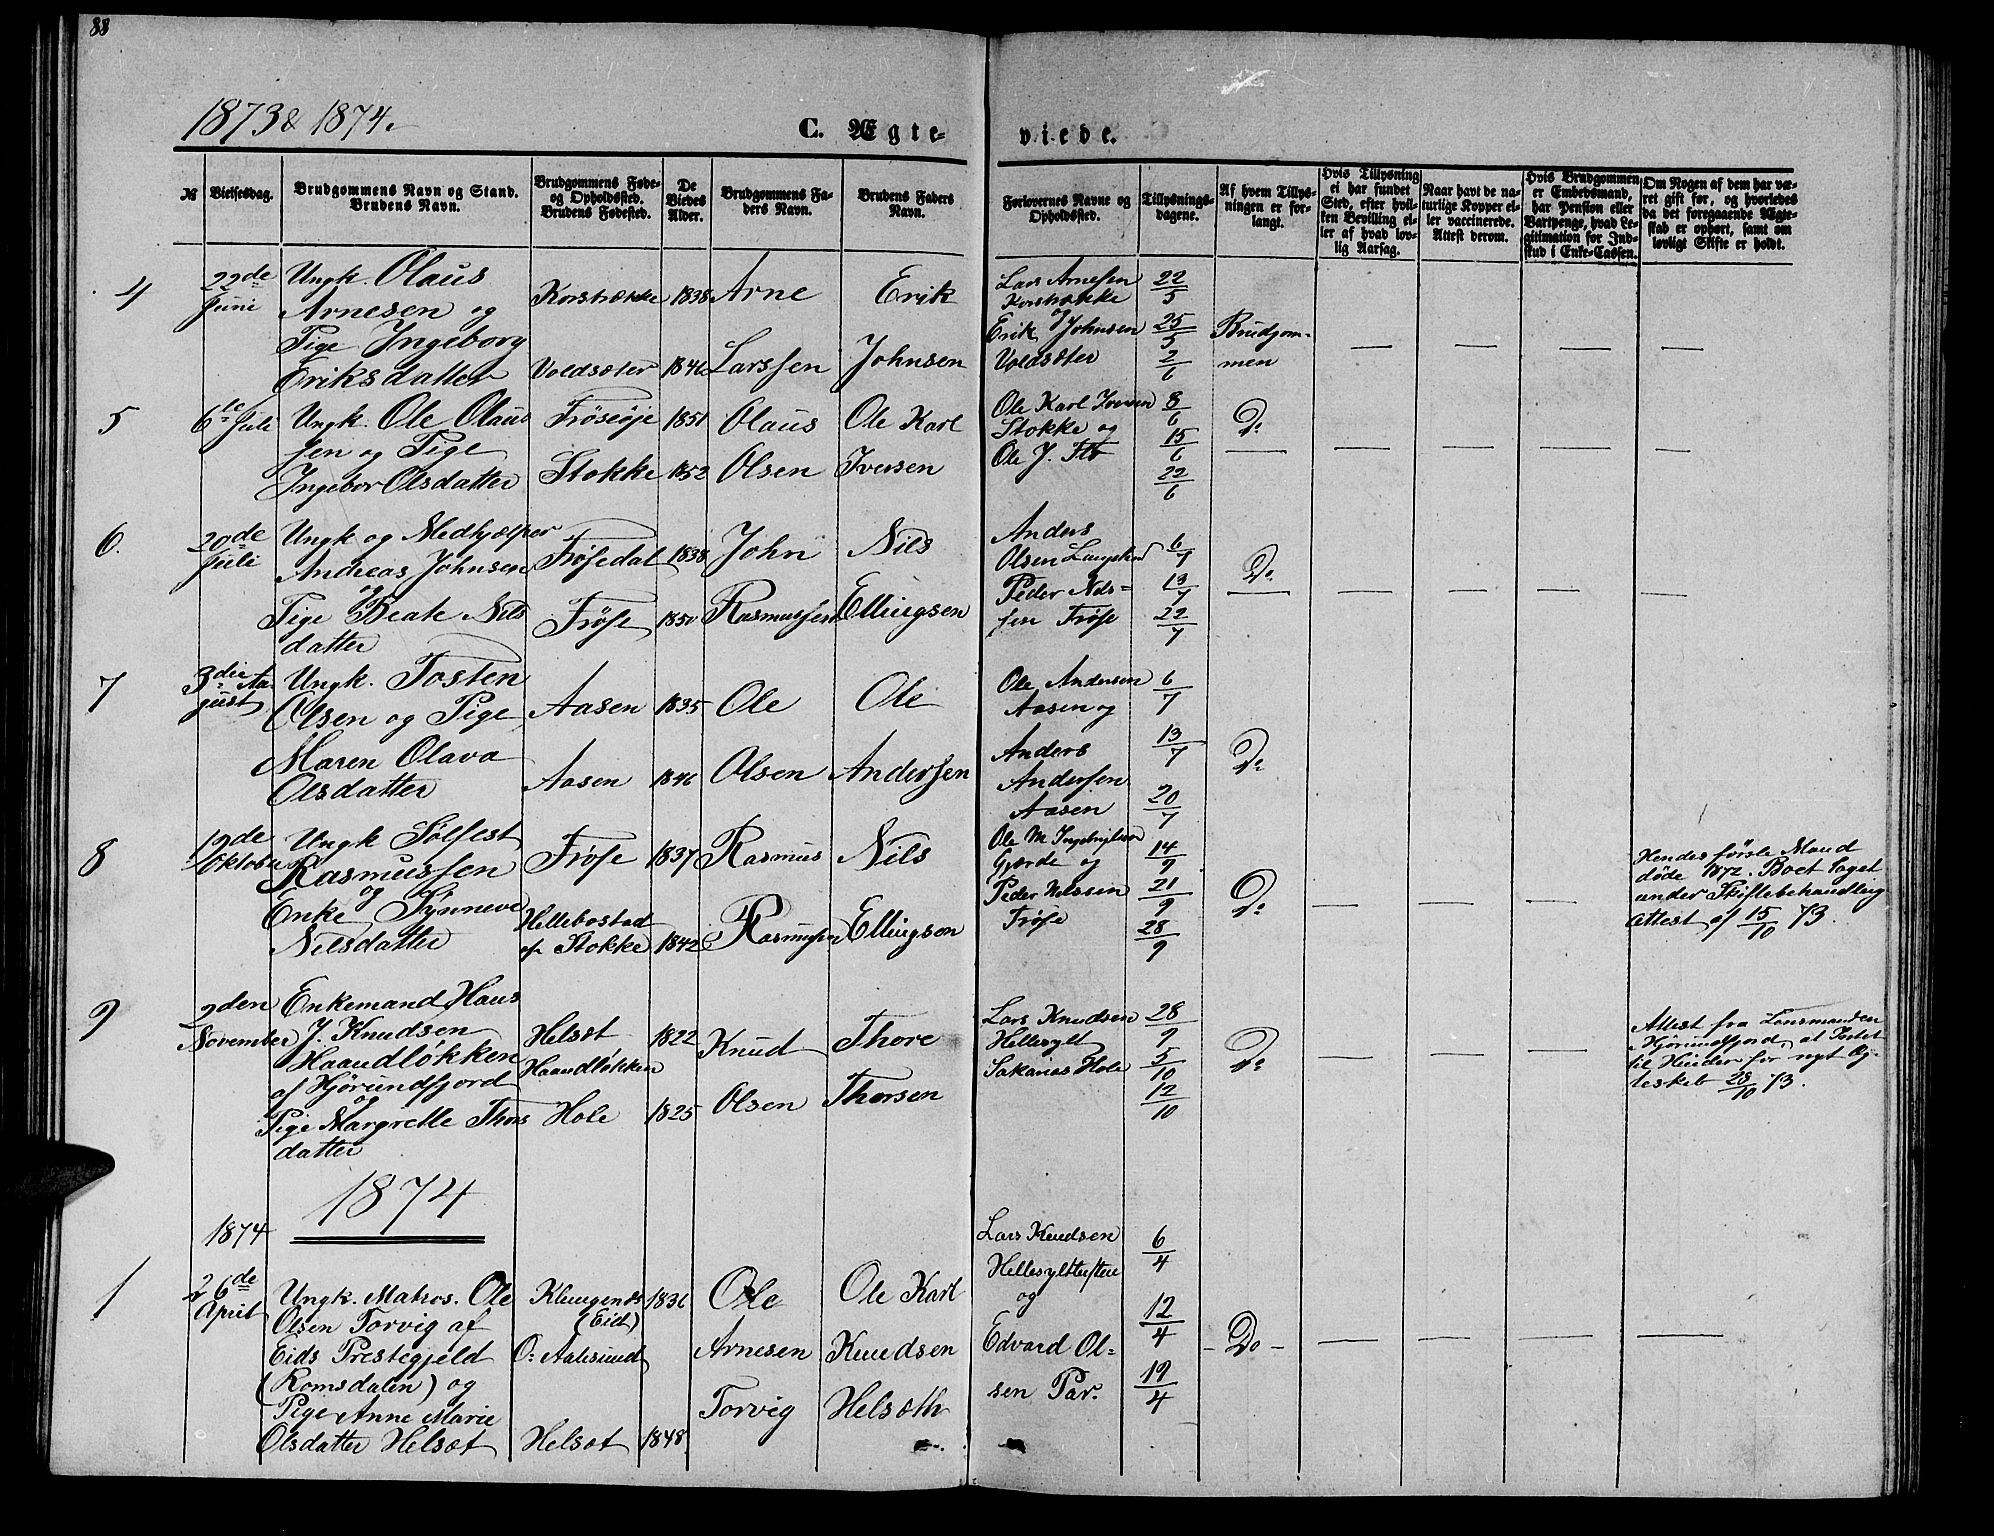 88
1873 & 1874.
C. Ægte-
viede.
№
Vielsesdag.
Brudgommens Navn og Stand.
Brudens Navn.
Brudgommens Føde-
og Opholdssted.
Brudens Fødested.
De
Viedes
Alder.
Brudgommens Fa-
ders Navn.
Brudens Faders
Navn.
Forlovernes Navne og
Opholdssted.
Tillysnings-
dagene.
Af hvem Tillys-
ningen er for-
langt.
Hvis Tillysning
ei har fundet
Sted, efter hvil-
ken Bevilling el-
ler af hvad lov-
lig Aarsag.
Naar havt de na-
turlige Kopper el-
ler vaccinerede.
Attest derom.
Hvis Brudgommen
er Embedsmand,
har Pension eller
Vartpenge, hvad Le-
gitimation for Ind-
skud i Enke-Cassen.
Om Nogen af dem har væ-
ret gift før, og hvorledes
da det foregaaende Ægte-
skab er ophørt, samt om
lovligt Skifte er holdt.
4
22de
Juni
Ungk. Olaus
Arnesen og
Pige Ingeborg
Eriksdatter
Korsbrække
Voldsæter
1838
1846
Arne
Larssen
Erik
Johnsen
Lars Arnesen
Korsbrække
og
Erik Johnsen
Voldsæter
22/5
25/5
2/6
Brudgom-
men
5
6te Juli
Ungk. Ole Olaus
sen og Pige
Ingebor Olsdatter
Frøseøje
Stokke
1851
1852
Olaus
Olsen
Ole Karl
Iversen
Ole Karl Iversen
Stokke og
Ole J. Flo
8/6
15/6
22/6
Do
6.
20de
Juli
Ungk og Medhjælper
Andreas Johnsen
og
Pige Beate Nils
datter
Frøsedal
Frøse
1838
1850
John
Rasmussen
Nils
Ellingsen
Anders
Olsen Langsted
Peder Nils=
sen Frøse
6/7
13/7
22/7
Do
7
3die Au-
gust
Ungk. Tosten
Olsen og Pige
Maren Olava
Olsdatter
Aasen
Aasen
1835
1846
Ole
Olsen
Ole
Andersen
Ole Andersen
Aasen og
Anders
Andersen
Aasen
6/7
13/7
20/7
Do
8
12de
Oktober
Ungk Sølfest
Rasmussen
og
Enke Synneve
Nilsdatter
Frøse
Hellebostad
af Stokke
1837
1842
Rasmus
Rasmussen
Nils
Ellingsen
Ole M. Ingebrigtsen
Gjærde og
Peder Nilssen
Frøse
14/9
21/9
28/9
Do
Hendes første Mand
døde 1872. Boet taget
under Skiftebehandling
Attest af 15/10 73.
9
2den
November
Enkemand Hans
J. Knudsen
Haandløkken
af Hjørundfjord
og
Pige Margrethe Thors
datter
Helsæt
Haandløkken
Hole
1822
1825
Knud
Olsen
Thore
Thorsen
Lars Knudsen
Hellesylt
Sakarias Hole
28/9
5/10
12/10
Do
Attest fra Lensmanden
i Hjørundfjord, at Intet
til Hinder for nyt Æg-
teskab 28/10 73.
1874
1874
1
26de
April
Ungk. Matros. Ole
Olsen Torvig af
Eids Prestegjeld
(Romsdalen) og
Pige Anne Marie
Olsdatter Helsæt
Klungenæs
(Eid)
O: Aalesund
Helsæt
1836
1848
Ole
Arnesen
Torvig
Ole Karl
Knudsen
Helsæth
Lars Knudsen
Hellesylttuften
og
Edvard Ol=
sen Par.
6/4
12/4
19/4
Do